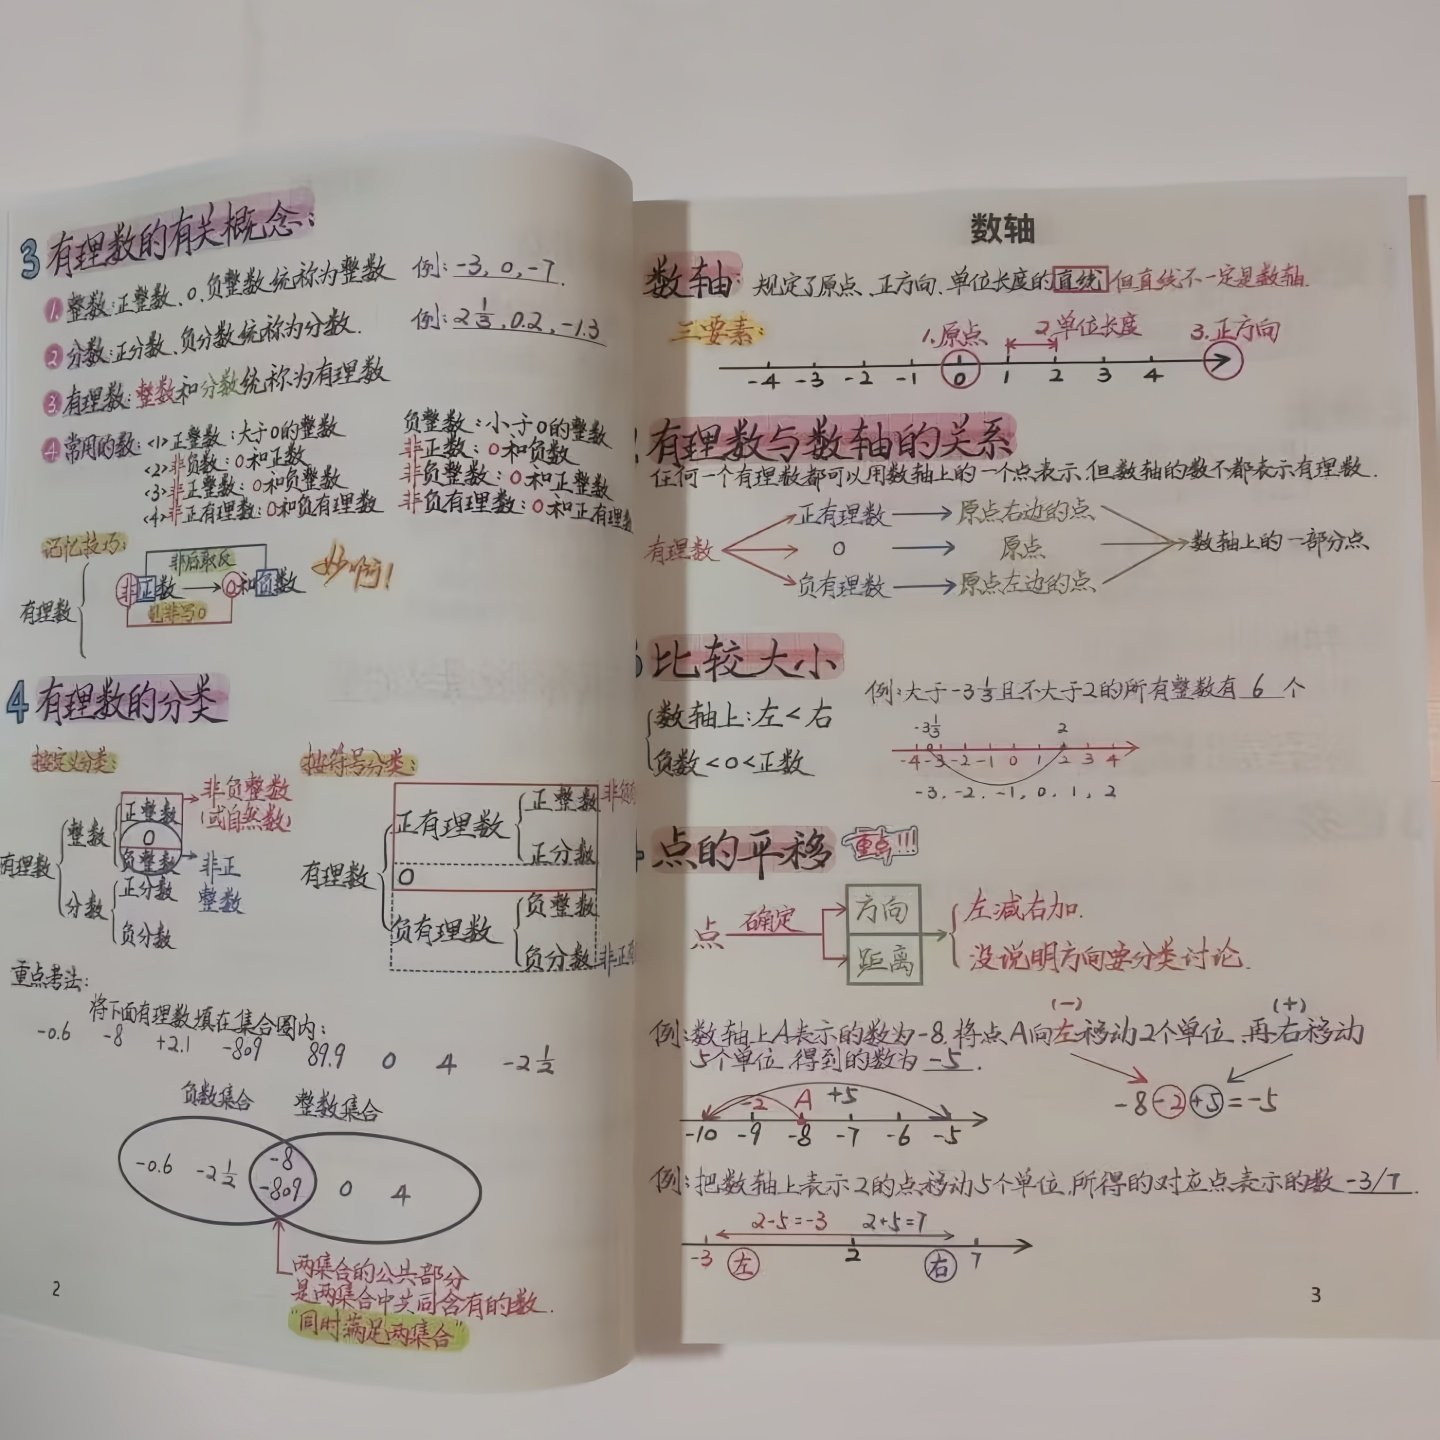 3 有理数的有关概念:
1. 整数:正整数、0、负整数统称为整数 例: -3, 0, -7.
2 分数:正分数、负分数统称为分数. 例: 2 1/3, 0.2, -1.3
3. 有理数: 整数和分数统称为有理数
4 常用的数: <1>正整数:大于0的整数 负整数:小于0的整数
<2>非负数: 0和正数 非正数: 0和负数
<3>非正整数: 0和负整数 非负整数: 0和正整数
<4>非正有理数: 0和负有理数 非负有理数: 0和正有理数
记忆技巧:
非后取反
有理数 非正数 → 0和负数 妙啊!
见非写0
4 有理数的分类
按定义分类:
有理数 整数 正整数 0 负整数
非负整数
(或自然数)
非正
整数
分数 正分数
负分数
按符号分类:
有理数 正有理数 正整数 非负
正分数
0
负有理数 负整数
负分数 非正
重点考法:
将下面有理数填在集合圈内:
-0.6 -8 +2.1 -809 89.9 0 4 -2 1/2
负数集合 整数集合
-0.6 -2 1/2 -8 -809 0 4
两集合的公共部分
是两集合中共同含有的数.
"同时满足两集合"
2
数轴
数轴: 规定了原点、正方向、单位长度的直线 但直线不一定是数轴.
三要素: 1.原点 2.单位长度 3.正方向
-4 -3 -2 -1 0 1 2 3 4
有理数与数轴的关系
任何一个有理数都可以用数轴上的一个点表示,但数轴的数不都表示有理数.
正有理数 → 原点右边的点
有理数 0 → 原点 数轴上的一部分点
负有理数 → 原点左边的点
比较大小
数轴上:左<右
负数<0<正数
例:大于-3 1/3且不大于2的所有整数有 6 个
-3 1/3 2
-4 -3 -2 -1 0 1 2 3 4
-3, -2, -1, 0, 1, 2
点的平移 重点!!!
点 确定 方向 距离
左减右加.
没说明方向要分类讨论.
(-) (+)
例:数轴上A表示的数为-8,将点A向左移动2个单位,再右移动
5个单位,得到的数为 -5 .
-2 A +5
-10 -9 -8 -7 -6 -5
-8-2+5=-5
例:把数轴上表示2的点移动5个单位,所得的对应点表示的数 -3/7 .
2-5=-3 2+5=7
-3 左 2 右 7
3